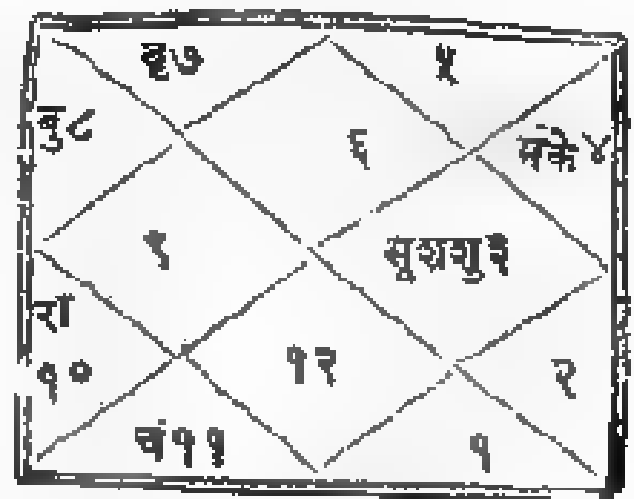 बृ७
५
बु८
६
मंके४
९
सूशशु३
रा
१०
१२
२
चं११
१